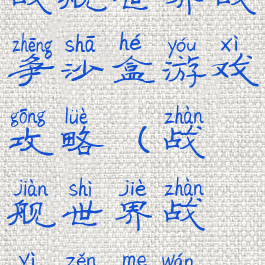 战舰世界战
zhēng shā hé yóu xì
争沙盒游戏
gōng lüè zhàn
攻略（战
jiàn shì jiè zhàn
舰世界战
yì zěn me wán